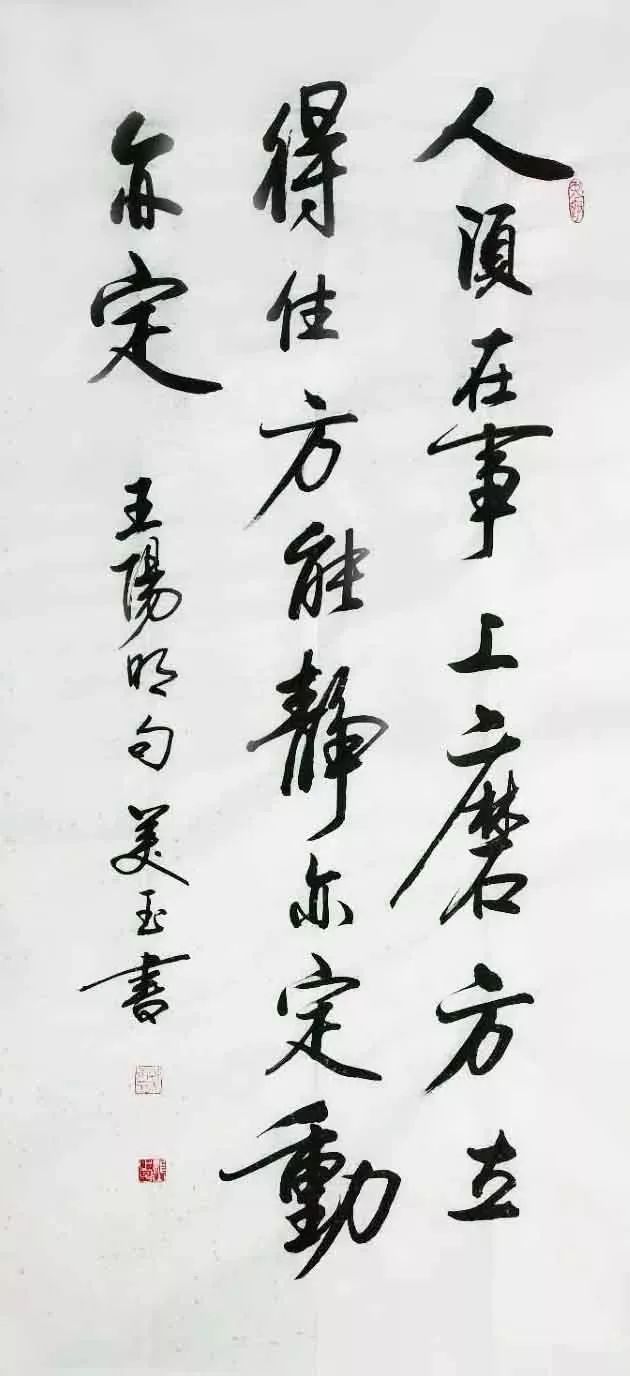 人須在事上磨方立
得住方能靜亦定動
亦定
王陽明句 美玉書